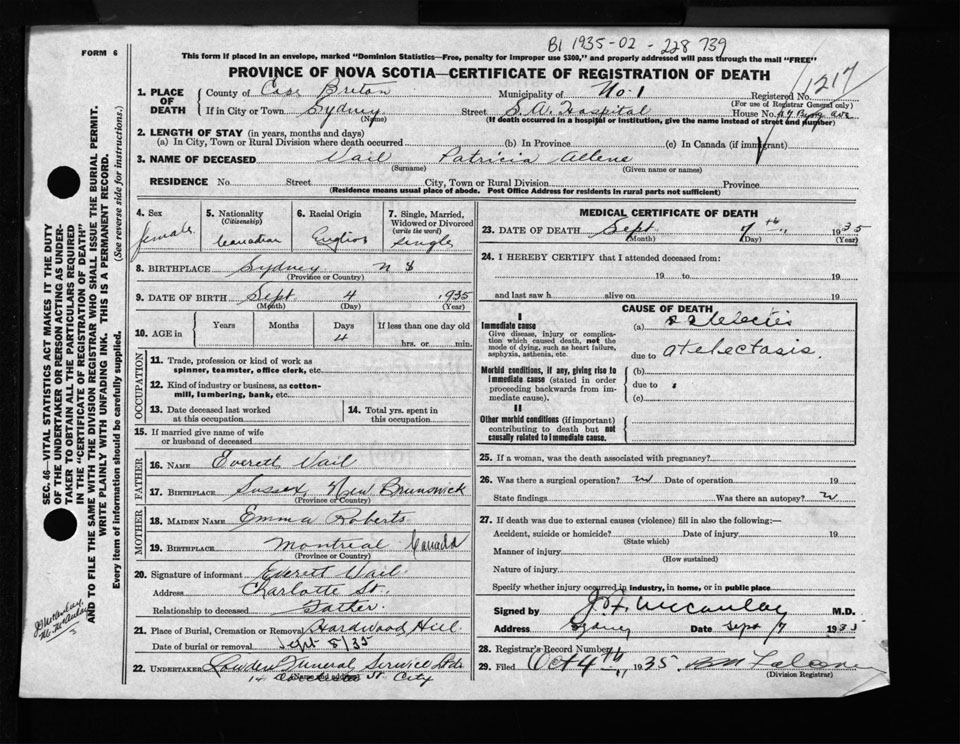 FORM 6
B1 1935-02-228739
This form if placed in an envelope, marked "Dominion Statistics—Free, penalty for improper use $300," and properly addressed will pass through the mail "FREE"
PROVINCE OF NOVA SCOTIA—CERTIFICATE OF REGISTRATION OF DEATH
1217
1. PLACE OF DEATH
County of Cape Breton Municipality of No. 1 Registered No.
(For use of Registrar General only)
If in City or Town Sydney Street S.A. Hospital House No.
(Name) (If death occurred in a hospital or institution, give the name instead of street and number)
2. LENGTH OF STAY (in years, months and days)
(a) In City, Town or Rural Division where death occurred (b) In Province (c) In Canada (if immigrant)
3. NAME OF DECEASED Vail Patricia Allene
(Surname) (Given name or names)
RESIDENCE No. Street City, Town or Rural Division Province
(Residence means usual place of abode. Post Office Address for residents in rural parts not sufficient)
4. Sex
female
5. Nationality
(Citizenship)
Canadian
6. Racial Origin
English
7. Single, Married, Widowed or Divorced
(write the word)
single
8. BIRTHPLACE Sydney N S
(Province or Country)
9. DATE OF BIRTH Sept 4 1935
(Month) (Day) (Year)
10. AGE in Years Months Days If less than one day old
4 hrs. or min.
OCCUPATION
11. Trade, profession or kind of work as
spinner, teamster, office clerk, etc.
12. Kind of industry or business, as cotton-
mill, lumbering, bank, etc.
13. Date deceased last worked
at this occupation
14. Total yrs. spent in
this occupation
15. If married give name of wife
or husband of deceased
FATHER
16. NAME Everett Vail
17. BIRTHPLACE Sussex, New Brunswick
(Province or Country)
MOTHER
18. MAIDEN NAME Emma Roberts
19. BIRTHPLACE Montreal Canada
(Province or Country)
20. Signature of informant Everett Vail
Address Charlotte St.,
Relationship to deceased Father.
21. Place of Burial, Cremation or Removal Hardwood Hill
Date of burial or removal Sept 8/35
22. UNDERTAKER Funeral Service Ltd.
(Name and address) St. City
MEDICAL CERTIFICATE OF DEATH
23. DATE OF DEATH Sept 7th 1935
(Month) (Day) (Year)
24. I HEREBY CERTIFY that I attended deceased from:
19 to 19
and last saw h alive on 19
CAUSE OF DEATH
I
Immediate cause (a)
Give disease, injury or complica-
tion which caused death, not the
mode of dying, such as heart failure,
asphyxia, asthenia, etc.
due to atelectasis.
Morbid conditions, if any, giving rise to (b)
immediate cause (stated in order due to
proceeding backwards from im-
mediate cause). (c)
II
Other morbid conditions (if important)
contributing to death but not
causally related to immediate cause.
25. If a woman, was the death associated with pregnancy?
26. Was there a surgical operation? Date of operation 19
State findings Was there an autopsy?
27. If death was due to external causes (violence) fill in also the following:—
Accident, suicide or homicide? Date of injury 19
(State which)
Manner of injury
(How sustained)
Nature of injury
Specify whether injury occurred in industry, in home, or in public place
Signed by M.D.
Address Sydney Date Sept 7 1935
28. Registrar's Record Number
29. Filed Oct 4th 1935
(Division Registrar)
SEC. 46—VITAL STATISTICS ACT MAKES IT THE DUTY
OF THE UNDERTAKER OR PERSON ACTING AS UNDER-
TAKER TO OBTAIN ALL THE PARTICULARS REQUIRED
IN THE "CERTIFICATE OF REGISTRATION OF DEATH"
AND TO FILE THE SAME WITH THE DIVISION REGISTRAR WHO SHALL ISSUE THE BURIAL PERMIT.
WRITE PLAINLY WITH UNFADING INK. THIS IS A PERMANENT RECORD.
Every item of information should be carefully supplied. (See reverse side for instructions.)